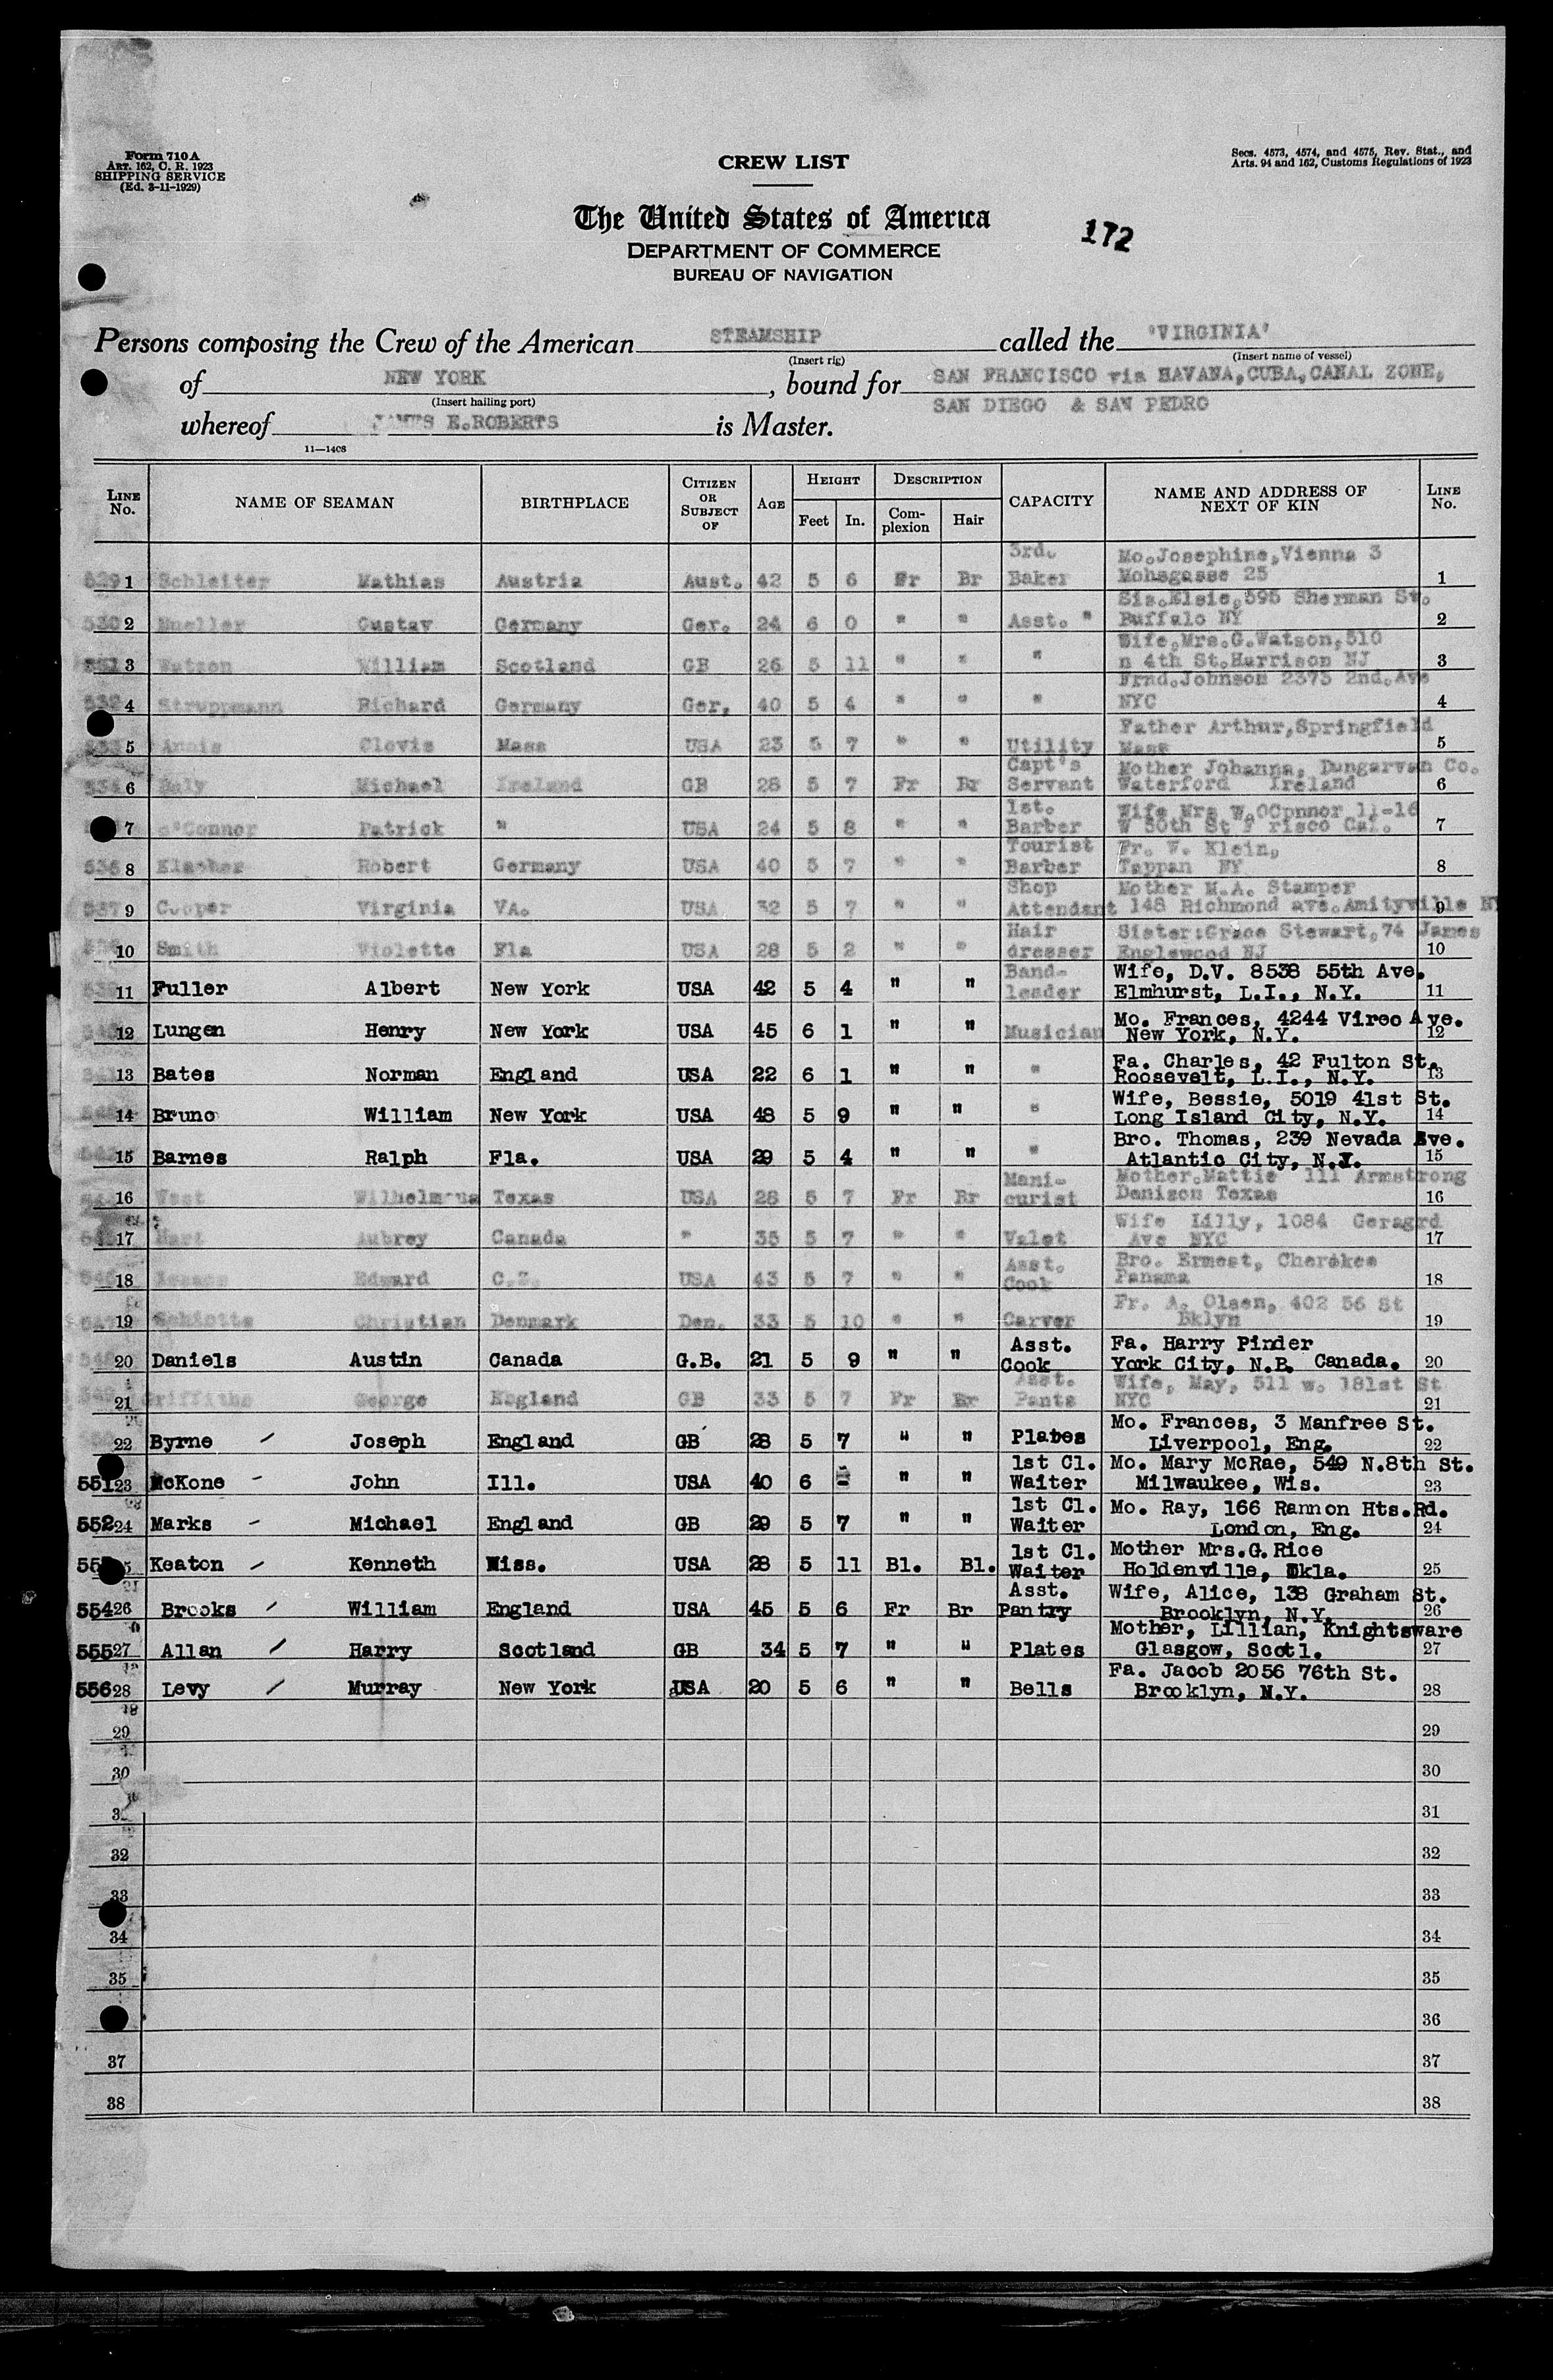 Form 710A
ART. 162, C. R. 1923
SHIPPING SERVICE
(Ed. 3-11-1929)
CREW LIST
Secs. 4573, 4574, and 4575, Rev. Stat., and
Arts. 94 and 162, Customs Regulations of 1923
The United States of America
172
DEPARTMENT OF COMMERCE
BUREAU OF NAVIGATION
Persons composing the Crew of the American STEAMSHIP called the 'VIRGINIA'
(Insert rig) (Insert name of vessel)
of NEW YORK, bound for SAN FRANCISCO via HAVANA, CUBA, CANAL ZONE,
(Insert hailing port) SAN DIEGO & SAN PEDRO
whereof JAMES E. ROBERTS is Master.
11—1408
LINE No. NAME OF SEAMAN BIRTHPLACE CITIZEN OR SUBJECT OF AGE HEIGHT Feet In. DESCRIPTION Complexion Hair CAPACITY NAME AND ADDRESS OF NEXT OF KIN LINE No.
529 1 Schleiter Mathias Austria Aust. 42 5 6 Fr Br 3rd. Baker Mo. Josephine, Vienna 3 Mohsgasse 25 1
530 2 Mueller Gustav Germany Ger. 24 6 0 " " Asst. " Sis. Elsie, 595 Sherman St. Buffalo NY 2
531 3 Watson William Scotland GB 26 5 11 " " " Wife, Mrs. G. Watson, 510 n 4th St. Harrison NJ 3
532 4 Struppmann Richard Germany Ger. 40 5 4 " " " Frnd. Johnson 2375 2nd. Ave NYC 4
533 5 Annis Clovis Mass USA 23 5 7 " " Utility Father Arthur, Springfield Mass 5
534 6 Daly Michael Ireland GB 28 5 7 Fr Br Capt's Servant Mother Johanna, Dungarvan Co. Waterford Ireland 6
7 O'Connor Patrick " USA 24 5 8 " " 1st. Barber Wife Mrs W. OCpnnor 11-16 W 50th St F risco Cal. 7
536 8 Robert Germany USA 40 5 7 " " Tourist Barber Fr. V. Klein, Tappan NY 8
537 9 Cooper Virginia VA. USA 32 5 7 " " Shop Attendant Mother M.A. Stamper 148 Richmond ave. Amityville NY 9
10 Smith Violette Fla USA 28 5 2 " " Hair dresser Sister: Grace Stewart, 74 James Englewood NJ 10
11 Fuller Albert New York USA 42 5 4 " " Band-leader Wife, D.V. 8538 55th Ave. Elmhurst, L.I., N.Y. 11
12 Lungen Henry New York USA 45 6 1 " " Musician Mo. Frances, 4244 Vireo Ave. New York, N.Y. 12
13 Bates Norman England USA 22 6 1 " " " Fa. Charles, 42 Fulton St. Roosevelt, L.I., N.Y. 13
14 Bruno William New York USA 48 5 9 " " " Wife, Bessie, 5019 41st St. Long Island City, N.Y. 14
15 Barnes Ralph Fla. USA 29 5 4 " " " Bro. Thomas, 239 Nevada Ave. Atlantic City, N.J. 15
16 West Wilhelmena Texas USA 28 5 7 Fr Br Mani-curist Mother. Mattie 111 Armstrong Denison Texas 16
17 Hart Aubrey Canada " 35 5 7 " " Valet Wife Lilly, 1084 Geragrd Ave NYC 17
18 Edward C.Z. USA 43 5 7 " " Asst. Cook Bro. Ernest, Cherokee Panama 18
19 Christian Denmark Den. 33 5 10 " " Carver Fr. A. Olsen, 402 56 St Bklyn 19
20 Daniels Austin Canada G.B. 21 5 9 " " Asst. Cook Fa. Harry Pinder York City, N.B. Canada. 20
21 Griffiths George England GB 33 5 7 Fr Br Asst. Pants Wife, May, 511 w. 181st St NYC 21
22 Byrne Joseph England GB 28 5 7 " " Plates Mo. Frances, 3 Manfree St. Liverpool, Eng. 22
551 23 McKone John Ill. USA 40 6 " " 1st Cl. Waiter Mo. Mary McRae, 549 N.8th St. Milwaukee, Wis. 23
552 24 Marks Michael England GB 29 5 7 " " 1st Cl. Waiter Mo. Ray, 166 Rannon Hts.Rd. London, Eng. 24
Keaton Kenneth Miss. USA 28 5 11 Bl. Bl. 1st Cl. Waiter Mother Mrs. G. Rice Holdenville, Okla. 25
554 26 Brooks William England USA 45 5 6 Fr Br Asst. Pantry Wife, Alice, 138 Graham St. Brooklyn, N.Y. 26
555 27 Allan Harry Scotland GB 34 5 7 " " Plates Mother, Lillian, Knightsware Glasgow, Scotl. 27
556 28 Levy Murray New York USA 20 5 6 " " Bells Fa. Jacob 2056 76th St. Brooklyn, N.Y. 28
29 29
30 30
31
32 32
33 33
34 34
35 35
36
37 37
38 38